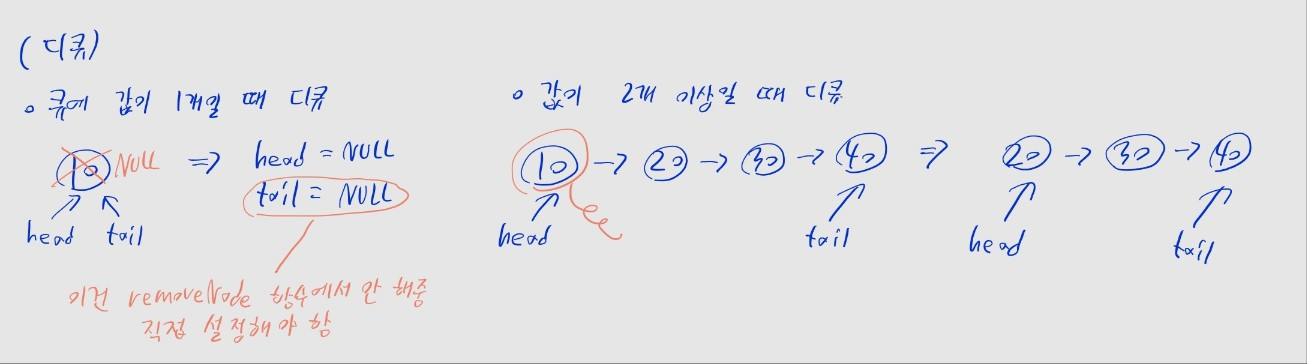 (디큐)
◦ 큐에 값이 1개일 때 디큐
10 NULL ⇒ head = NULL
tail = NULL
head tail
이건 removeNode 함수에서 안 해줌
직접 설정해야 함
◦ 값이 2개 이상일 때 디큐
10 → 20 → 30 → 40 ⇒ 20 → 30 → 40
head tail head tail